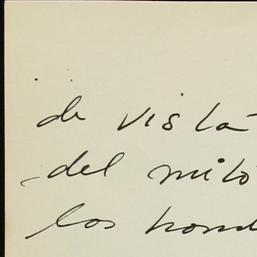 de vista
del mito
los homb